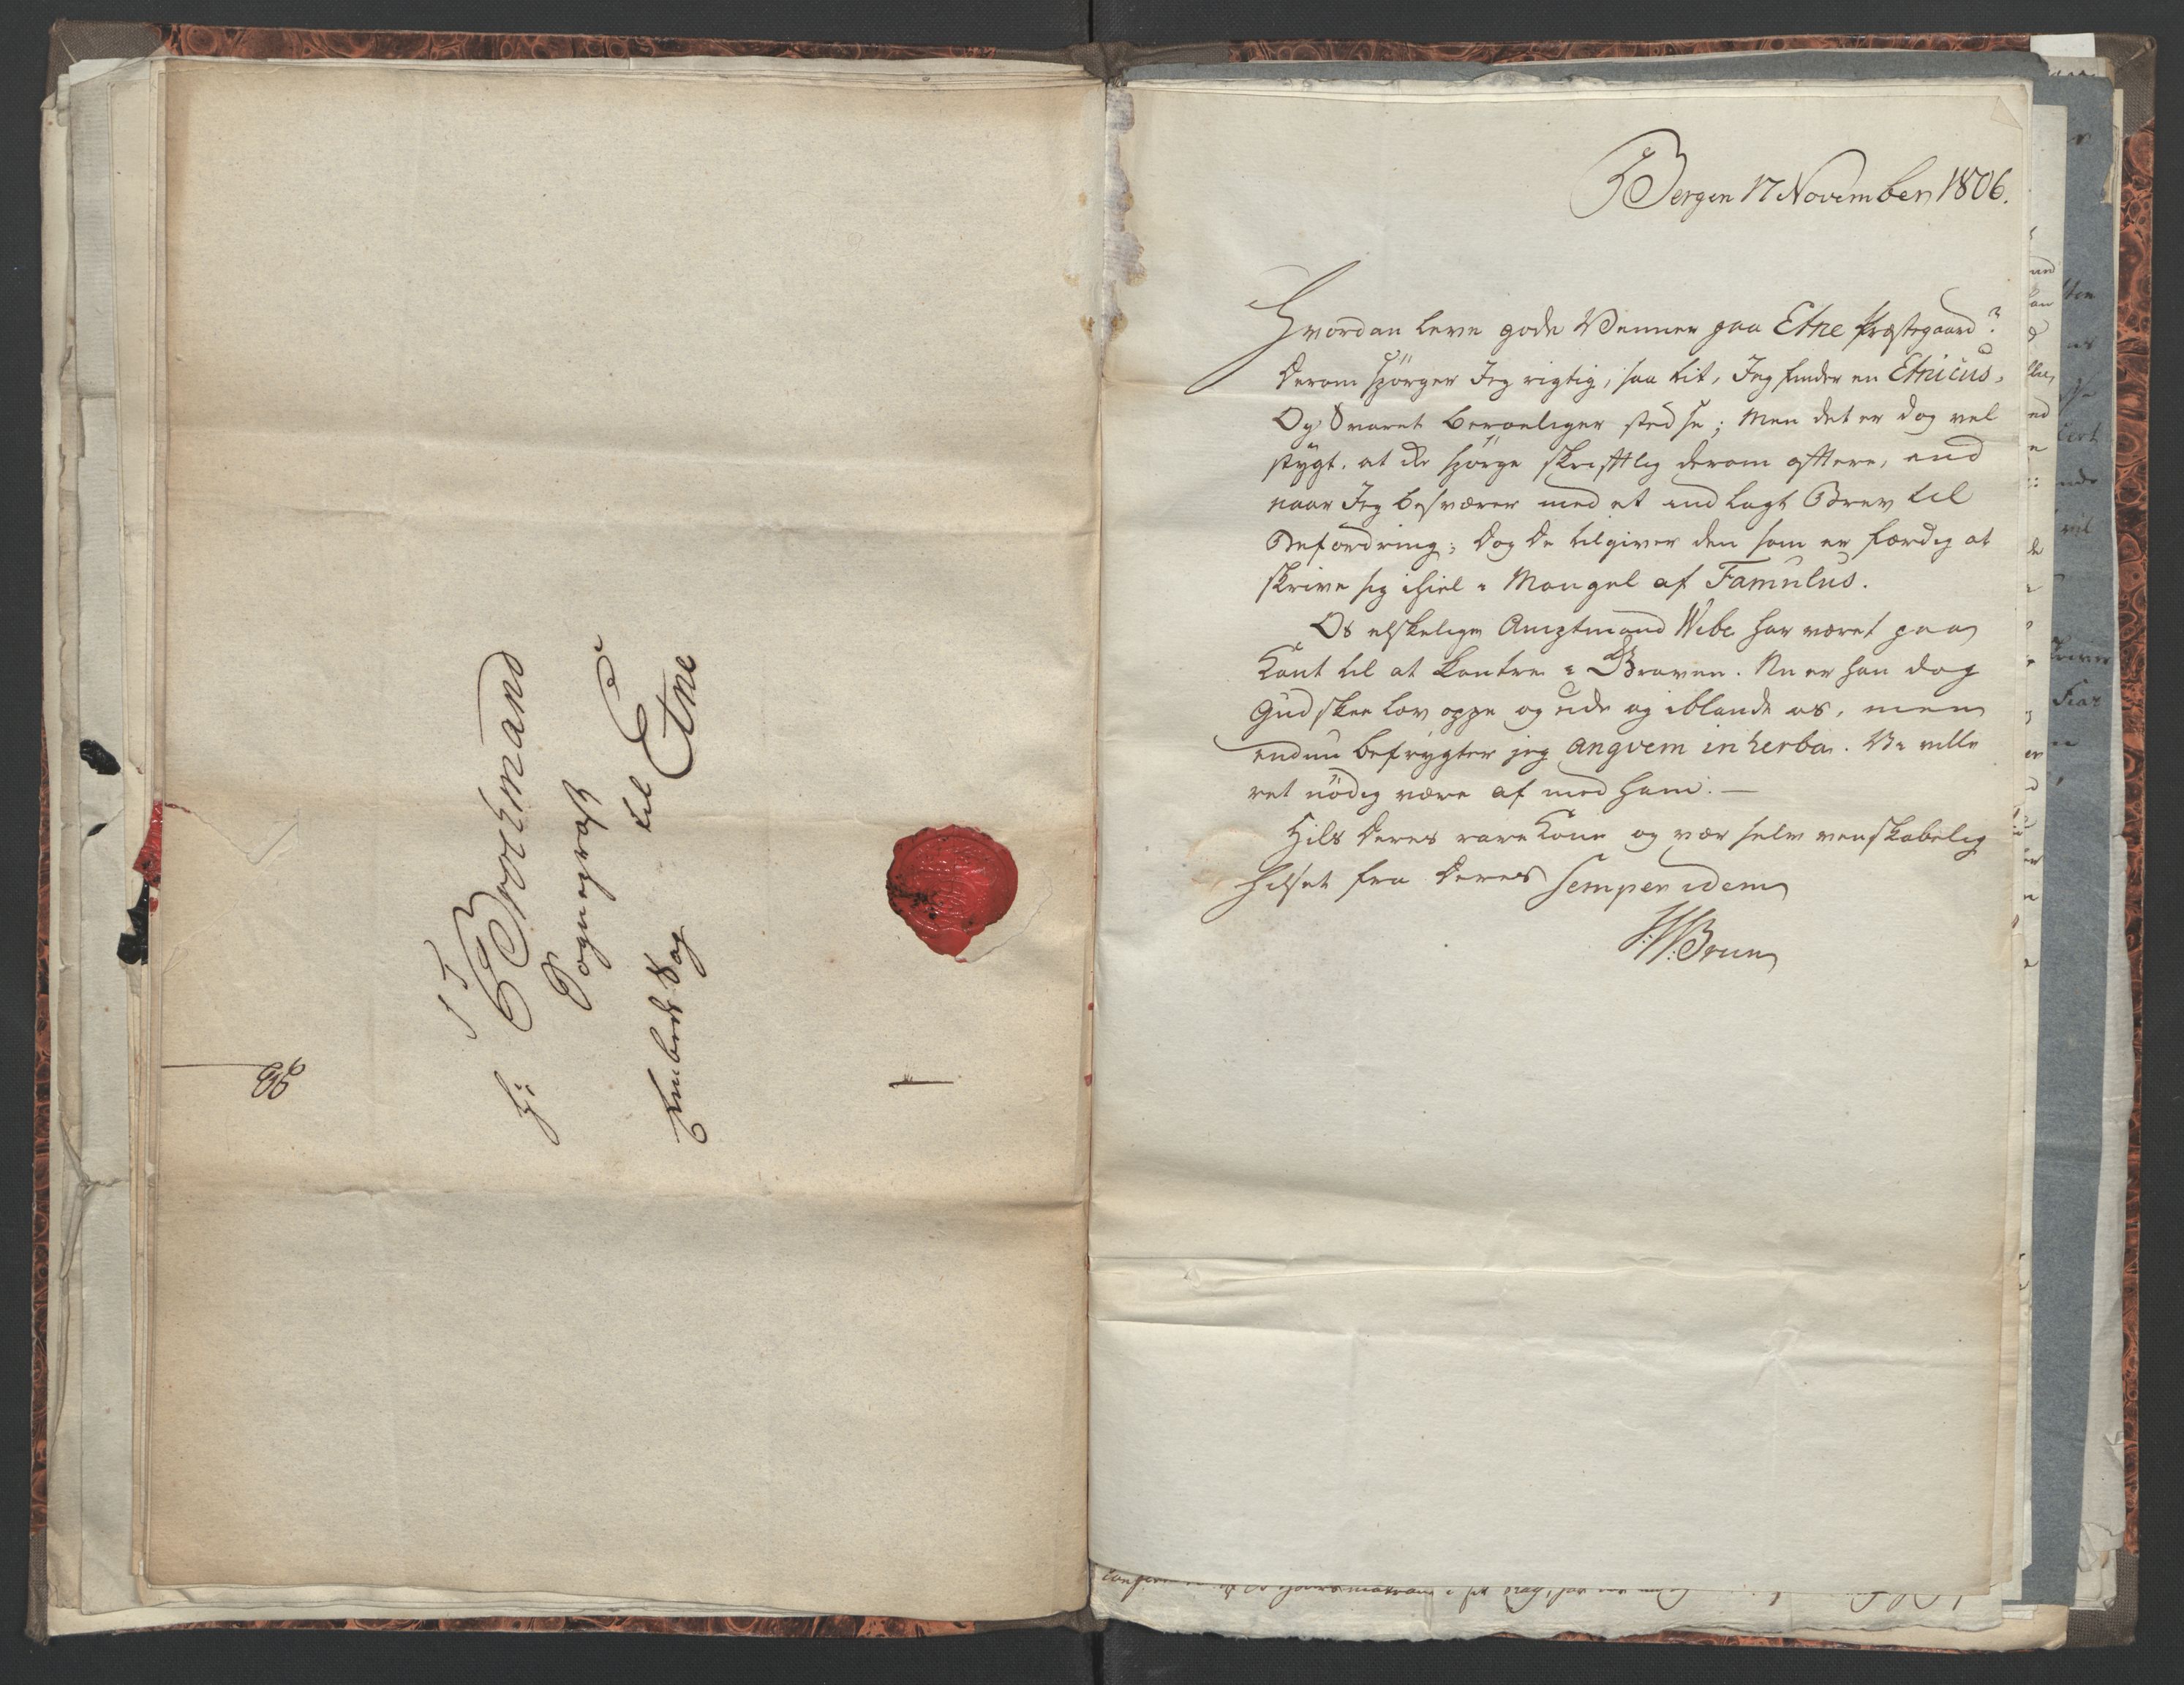 S T
Hr: Brochmand
Sognepræst
til Etne
Embeds Sag
Bergen 17 November 1806.
Hvordan leve gode Venner paa Etne Præstegaard?
Derom spörger Jeg rigtig, saa tit, Jeg finder en Etnicus,
Og Svaret beroeliger stedse; Men det er dog vel
stÿgt, at spörge skriftlig derom oftere, end
naar Jeg besværer med et indlagt Brev til
Befordring; dog De tilgiver den som er færdig at
skrive sig ihiel i Mangel af Famulus.
Os elskelige Amptmand Wibe har været paa
Kant til at kantre i Graven. Nu er han dog
Gud skee lov oppe og ude og iblandt os, men
endnu befrygter jeg angvem in herba. Vi ville
ret nödig være af med ham. —
Hils Deres rare Kone og vær selv venskabelig
hilset fra Deres semper idem
J: N: Brun